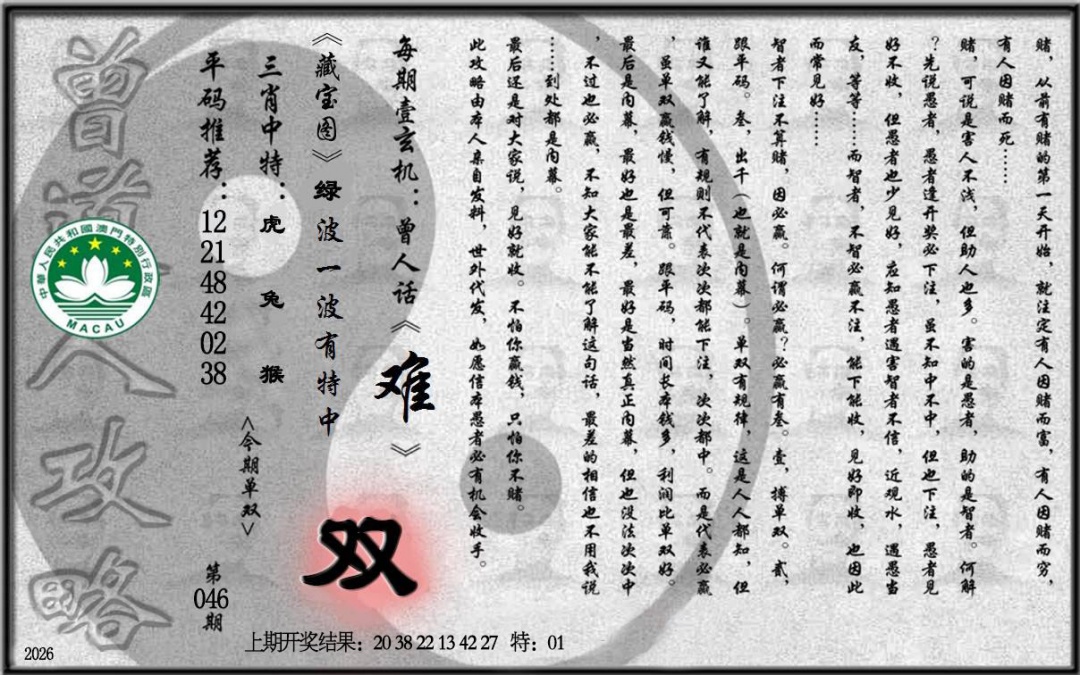 赌，从前有赌的第一天开始，就注定有人因赌而富，有人因赌而穷，
有人因赌而死……
赌，可说是害人不浅，但助人也多。害的是愚者，助的是智者。何解
？先说愚者，愚者逢开奖必下注，虽不知中不中，但也下注，愚者见
好不收，但愚者也少见好，应知愚者遇害智者不信，近观水，遇愚当
友，等等……而智者，不智必赢不注，能下能收，见好即收，也因此
而常见好……
智者下注不算赌，因必赢。何谓必赢？必赢有叁。壹，搏单双。贰，
跟平码。叁，出千（也就是内幕）。单双有规律，这是人人都知，但
谁又能了解，有规则不代表次次都能下注，次次都中。而是代表必赢
，虽单双赢钱慢，但可靠。跟平码，时间长本钱多，利润比单双好。
最后是内幕，最好也是最差，最好是当然真正内幕，但也没法次次中
，不过也必赢，不知大家能不能了解这句话，最差的相信也不用我说
……到处都是内幕。
最后还是对大家说，见好就收。不怕你赢钱，只怕你不赌。
此攻略由本人亲自发料，世外代发，如愿信本愚者必有机会收手。
每期壹玄机：曾人话《难》
《藏宝图》绿波一波有特中
双
三肖中特：虎 兔 猴
<今期单双>
平码推荐：12 21 48 42 02 38
第046期
曾道人攻略
中華人民共和國澳門特別行政區
MACAU
上期开奖结果：20 38 22 13 42 27 特：01
2026